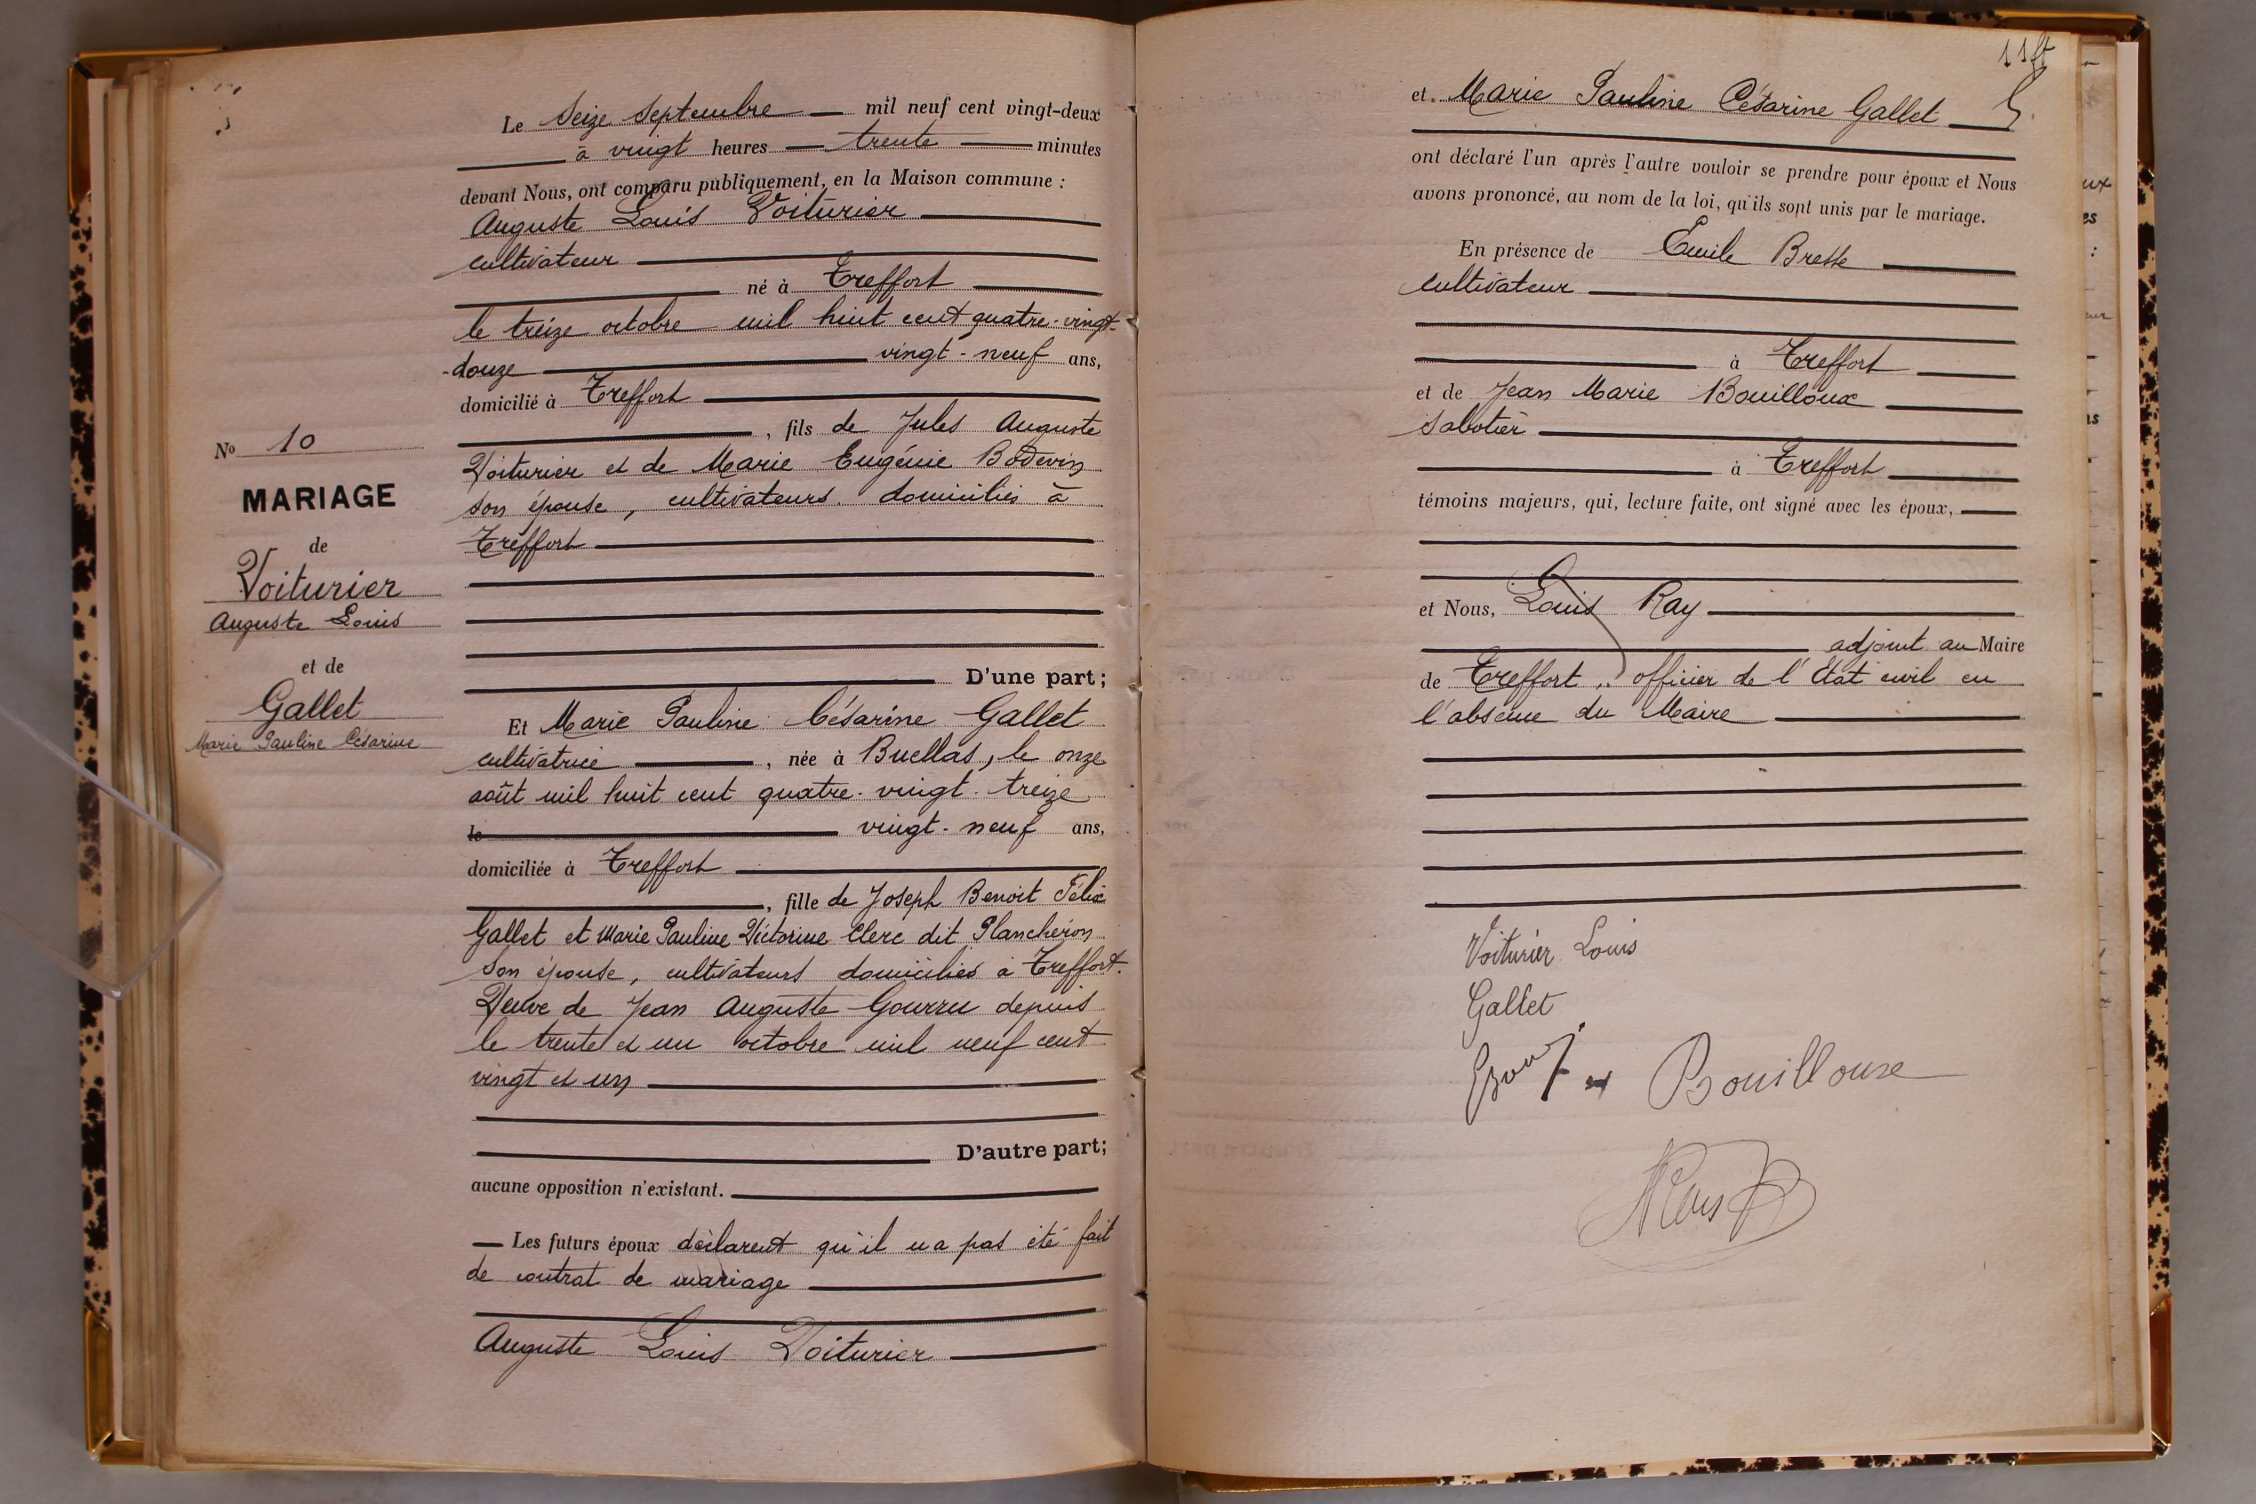 Le Seize Septembre mil neuf cent vingt-deux
à vingt heures trente minutes
devant Nous, ont comparu publiquement, en la Maison commune :
Auguste Louis Voiturier
cultivateur
né à Treffort
le treize octobre mil huit cent quatre-vingt-
-douze vingt-neuf ans,
domicilié à Treffort
, fils de Jules Auguste
Voiturier et de Marie Eugénie Bodevin
son épouse, cultivateurs domiciliés à
Treffort
No 10
MARIAGE
de
Voiturier
Auguste Louis
et de
Gallet
Marie Pauline Césarine
D'une part;
Et Marie Pauline Césarine Gallet
cultivatrice , née à Buellas, le onze
août mil huit cent quatre-vingt-treize
le vingt-neuf ans,
domiciliée à Treffort
, fille de Joseph Benoit Félix
Gallet et Marie Pauline Victorine Clerc dit Plancheron
son épouse, cultivateurs domiciliés à Treffort.
Veuve de Jean Auguste Gourru depuis
le trente et un octobre mil neuf cent
vingt et un
D'autre part;
aucune opposition n'existant.
Les futurs époux déclarent qu'il n'a pas été fait
de contrat de mariage
Auguste Louis Voiturier
et Marie Pauline Césarine Gallet
ont déclaré l'un après l'autre vouloir se prendre pour époux et Nous
avons prononcé, au nom de la loi, qu'ils sont unis par le mariage.
En présence de Emile Bresse
cultivateur
à Treffort
et de Jean Marie Bouilloux
sabotier
à Treffort
témoins majeurs, qui, lecture faite, ont signé avec les époux,
et Nous, Louis Ray
adjoint au Maire
de Treffort, officier de l'Etat civil en
l'absence du Maire
Voiturier Louis
Gallet
Bouilloux